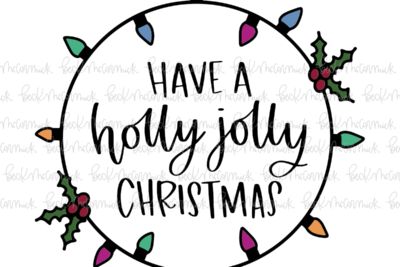 HAVE A
holly jolly
CHRISTMAS